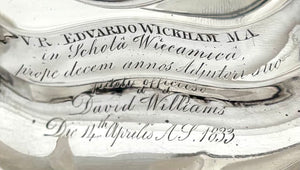 V. R. EDVARDO WICKHAM M A
in Scholâ Wiccamicâ,
prope decem annos Adjutori suo
officioso
d.
David Williams
Die 14th Aprilis A.S. 1833.